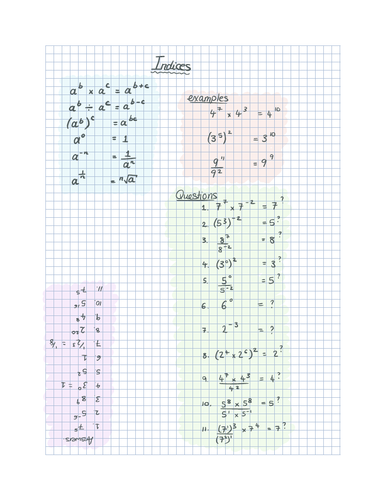 Indices
a^b × a^c = a^(b+c)
a^b ÷ a^c = a^(b-c)
(a^b)^c = a^(bc)
a^0 = 1
a^(-n) = 1/a^n
a^(1/n) = ⁿ√a
examples
4^7 × 4^3 = 4^10
(3^5)^2 = 3^10
9^11/9^2 = 9^9
Questions
1. 7^7 × 7^-2 = 7^?
2. (5^3)^-2 = 5^?
3. 8^7/8^-2 = 8^?
4. (3^0)^2 = 3^?
5. 5^0/5^-2 = 5^?
6. 6^0 = ?
7. 2^-3 = ?
8. (2^4 × 2^6)^2 = 2^?
9. (4^7 × 4^3)/4^2 = 4^?
10. (5^8 × 5^8)/(5^1 × 5^-1) = 5^?
11. (7^1)^3/(7^2)^1 × 7^4 = 7^?
Answers
1 7^5
2 5^-6
3 8^9
4 3^0 = 1
5 5^2
6 1
7 1/2^3 = 1/8
8 2^20
9 4^8
10 5^16
11 7^5